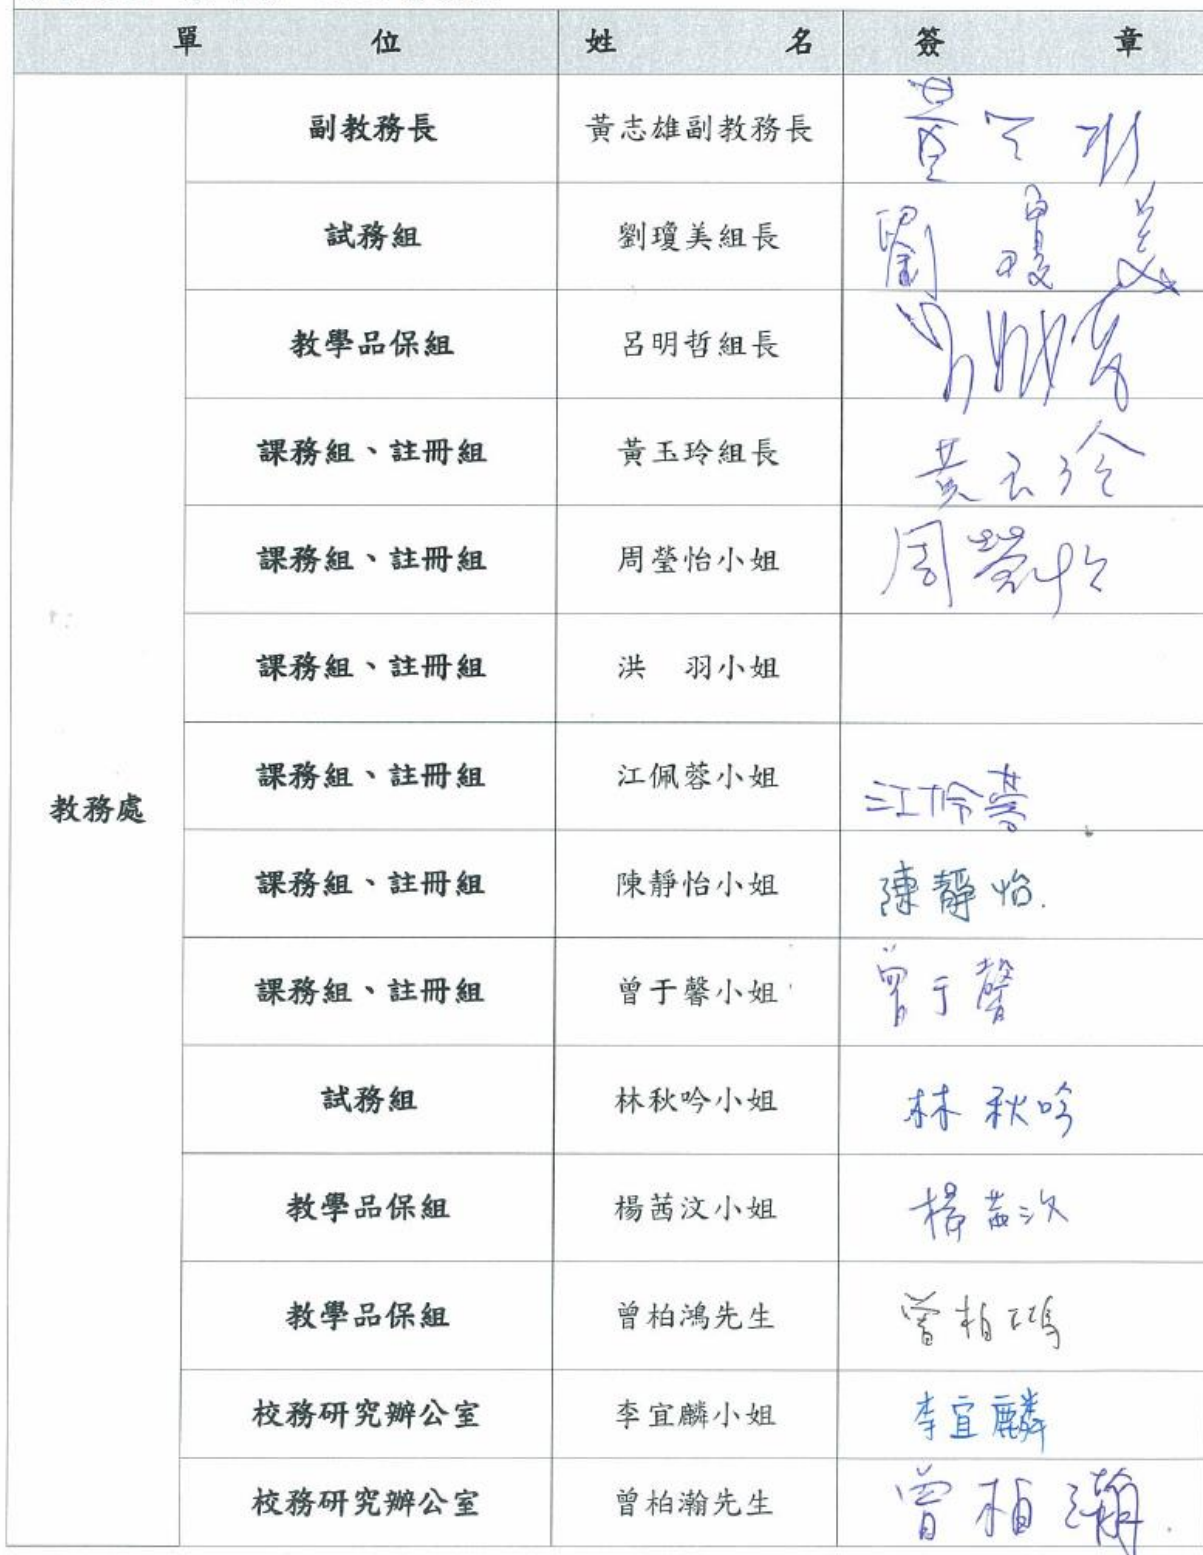 單位 姓名 簽章
教務處
副教務長 黃志雄副教務長 黃志雄
試務組 劉瓊美組長 劉瓊美
教學品保組 呂明哲組長 呂明哲
課務組、註冊組 黃玉玲組長 黃玉玲
課務組、註冊組 周瑩怡小姐 周瑩怡
課務組、註冊組 洪 羽小姐
課務組、註冊組 江佩蓉小姐 江佩蓉
課務組、註冊組 陳靜怡小姐 陳靜怡.
課務組、註冊組 曾于馨小姐 曾于馨
試務組 林秋吟小姐 林秋吟
教學品保組 楊茜汶小姐 楊茜汶
教學品保組 曾柏鴻先生 曾柏鴻
校務研究辦公室 李宜麟小姐 李宜麟
校務研究辦公室 曾柏瀚先生 曾柏瀚